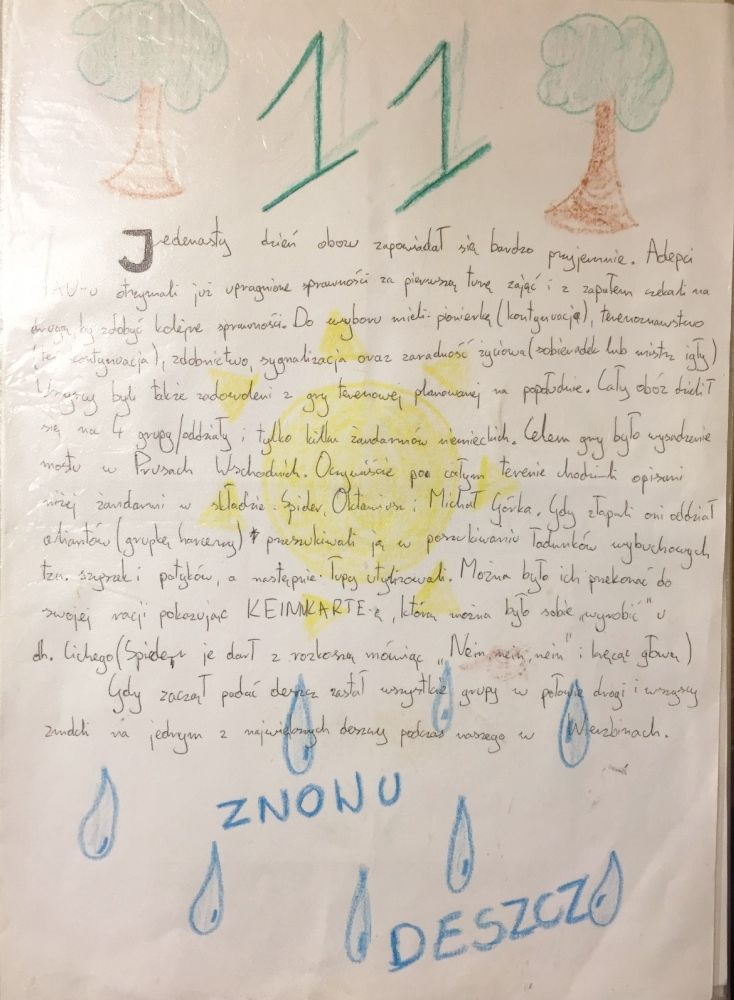 11
Jedenasty dzień obozu zapowiadał się bardzo przyjemnie. Adepci
HAU-u otrzymali już upragnione sprawności za pierwszą turę zajęć i z zapałem czekali na
drugą, by zdobyć kolejne sprawności. Do wyboru mieli: pionierkę (kontynuacja), terenoznawstwo
(też kontynuacja), zdobnictwo, sygnalizacja oraz zaradność życiowa (sobieradek lub mistrz igły)
Wszyscy byli także zadowoleni z gry terenowej planowanej na popołudnie. Cały obóz dzielił
się na 4 grupy/oddziały i tylko kilku żandarmów niemieckich. Celem gry było wysadzenie
mostu w Prusach Wschodnich. Oczywiście po całym terenie chodzili opisani
niżej żandarmi w składzie: Spider, Oktawiusz i Michał Górka. Gdy złapali oni oddział
aliantów (grupkę harcerzy) przeszukiwali ją w poszukiwaniu ładunków wybuchowych
tzn. szyszek i patyków, a następnie łupy utylizowali. Można było ich przekonać do
swojej racji pokazując KEINNKARTE-ę, którą można było sobie „wyrobić" u
dh. Cichego (Spider je darł z rozkoszą mówiąc „Nein, nein, nein" i kręcąc głową)
Gdy zaczął padać deszcz zastał wszystkie grupy w połowie drogi i wszyscy
zmokli na jednym z największych deszczy podczas naszego w Wierzbinach.
ZNOWU
DESZCZ